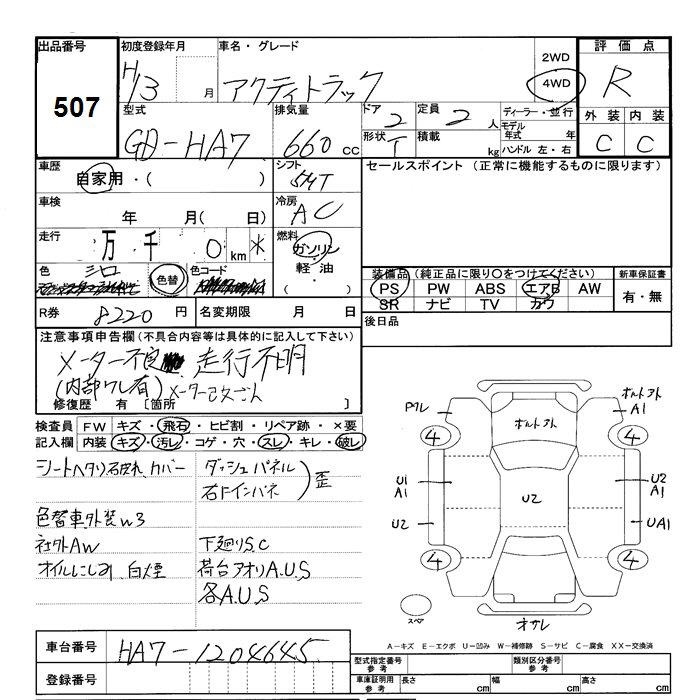 出品番号
507
初度登録年月
H13 月
車名・グレード
アクティトラック
2WD
4WD
評価点
R
外装 内装
C C
型式
GD-HA7
排気量
660 cc
ドア
2
形状
T
定員
2 人
積載
kg
ディーラー・並行
モデル年式 年
ハンドル 左・右
車歴
自家用・( )
シフト
5MT
車検
年 月( 日)
冷房
AC
走行
万 千 0 km *
燃料
ガソリン
・軽油・
色
シロ
色替
色コード
R券 8220 円
名変期限 月 日
セールスポイント (正常に機能するものに限ります)
装備品(純正品に限り○をつけてください)
PS PW ABS エアB AW
SR ナビ TV カワ
新車保証書
有・無
後日品
注意事項申告欄(不具合内容等は具体的に記入して下さい)
メーター不良 走行不明
(内部ワレ有) メーター改ざん
修復歴 有 [箇所 ]
検査員記入欄
FW キズ・飛石・ヒビ割・リペア跡・×要
内装 キズ・汚レ・コゲ・穴・スレ・キレ・破レ
シートヘタリ破れ、カバー
色替車外装w3
社外AW
オイルにじみ 白煙
ダッシュパネル
右にインパネ
歪
下廻りS.C
荷台アオリA.U.S
各A.U.S
ワレ
ボルト外
ボルト外
A1
4
4
U1
A1
U2
U2
U2
A1
UA1
4
4
スペア
オサレ
A-キズ E-エクボ U-凹み W-補修跡 S-サビ C-腐食 XX-交換済
車台番号
HA7-1204645
登録番号
型式指定番号 参考
類別区分番号 参考
車庫証明用 参考
長さ cm 幅 cm 高さ cm